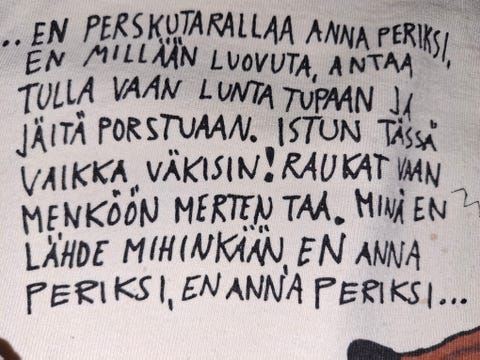 ..EN PERSKUTARALLAA ANNA PERIKSI,
EN MILLÄÄN LUOVUTA, ANTAA
TULLA VAAN LUNTA TUPAAN JA
JÄITÄ PORSTUAAN. ISTUN TÄSSÄ
VAIKKA VÄKISIN! RAUKAT VAAN
MENKÖÖN MERTEN TAA. MINÄ EN
LÄHDE MIHINKÄÄN, EN ANNA
PERIKSI, EN ANNA PERIKSI...